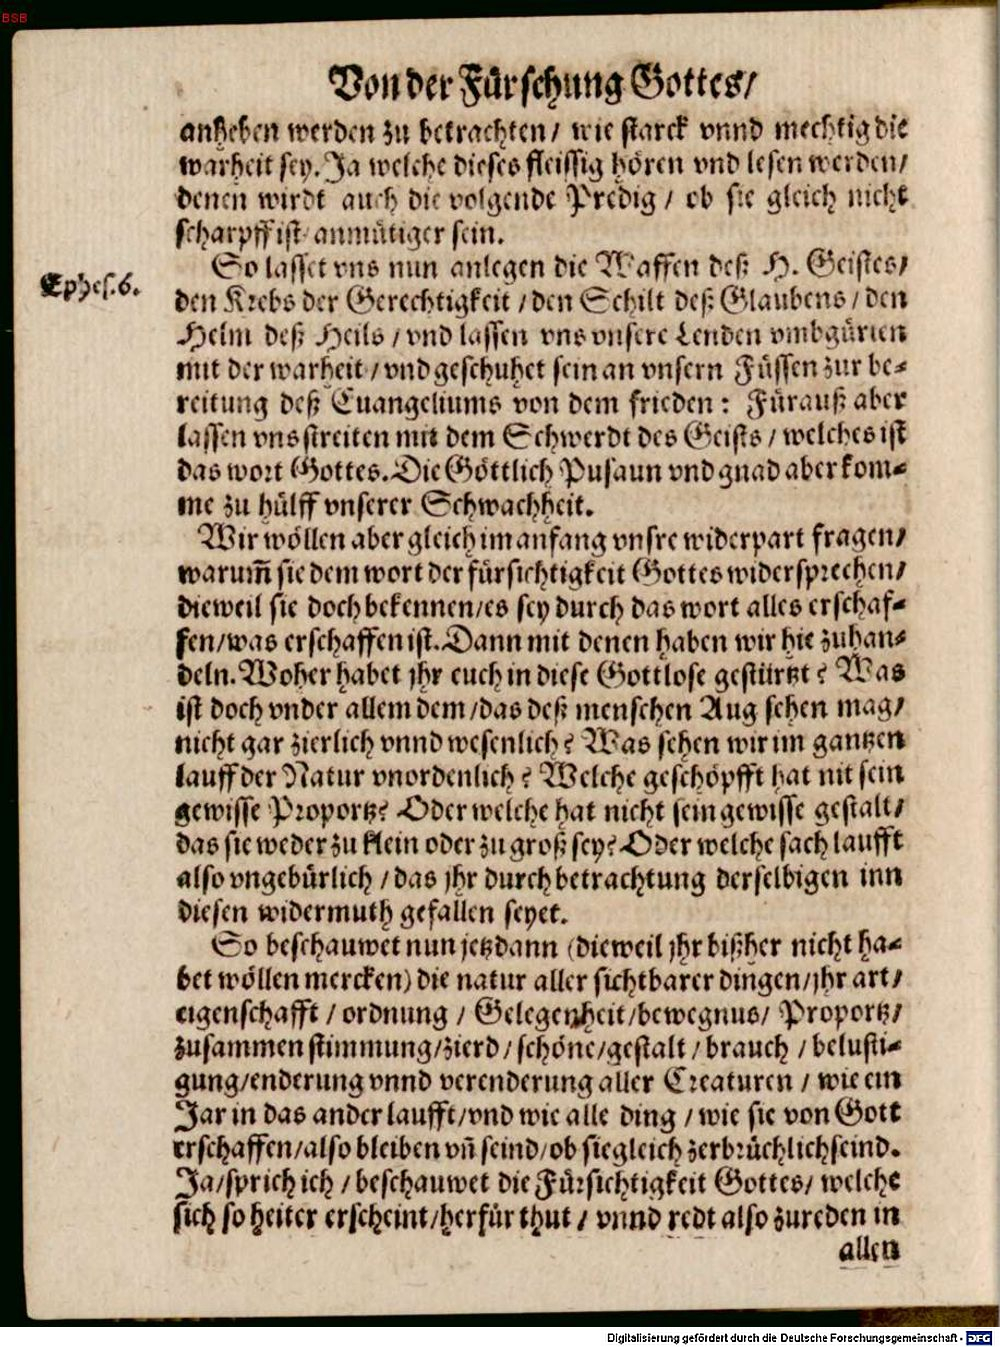 BSB
Von der Fürsehung Gottes/
anheben werden zu betrachten/ wie starck vnnd mechtig die
warheit sey. Ja welche dieses fleissig hören vnd lesen werden/
denen wirdt auch die volgende Predig / ob sie gleich nicht
scharpff ist anmütiger sein.
So lasset vns nun anlegen die Waffen deß H. Geistes/
Ephes. 6.
den Krebs der Gerechtigkeit / den Schilt deß Glaubens / den
Helm deß Heils / vnd lassen vns vnsere Lenden vmbgürten
mit der warheit / vnd geschuhet sein an vnsern Füssen zur be-
reitung deß Euangeliums von dem frieden: Fürauß aber
lassen vns streiten mit dem Schwerdt des Geists / welches ist
das wort Gottes. Die Göttlich Pusaun vnd gnad aber kom-
me zu hülff vnserer Schwachheit.
Wir wöllen aber gleich im anfang vnsre widerpart fragen/
warum̄ sie dem wort der fürsichtigkeit Gottes widersprechen/
dieweil sie doch bekennen/es sey durch das wort alles erschaf-
fen/was erschaffen ist. Dann mit denen haben wir hie zuhan-
deln. Woher habet jhr euch in diese Gottlose gestürtzt? Was
ist doch vnder allem dem /das deß menschen Aug sehen mag/
nicht gar zierlich vnnd wesenlich? Was sehen wir im gantzen
lauff der Natur vnordenlich? Welche geschöpfft hat nit sein
gewisse Proportz? Oder welche hat nicht sein gewisse gestalt/
das sie weder zu klein oder zu groß sey? Oder welche sach laufft
also vngebürlich / das jhr durch betrachtung derselbigen inn
diesen widermuth gefallen seyet.
So beschauwet nun jetzdann (dieweil jhr bißher nicht ha-
bet wöllen mercken) die natur aller sichtbarer dingen/jhr art/
eigenschafft / ordnung / Gelegenheit/bewegnus/ Proportz/
zusammenstimmung/zierd/schöne/gestalt / brauch / belusti-
gung/enderung vnnd verenderung aller Creaturen / wie ein
Jar in das ander laufft/vnd wie alle ding / wie sie von Gott
erschaffen/also bleiben vn̄ seind/ob sie gleich zerbrüchlich seind.
Ja/sprich ich / beschauwet die Fürsichtigkeit Gottes/ welche
sich so heiter erscheint/herfür thut / vnnd redt also zureden in
allen
Digitalisierung gefördert durch die Deutsche Forschungsgemeinschaft - DFG